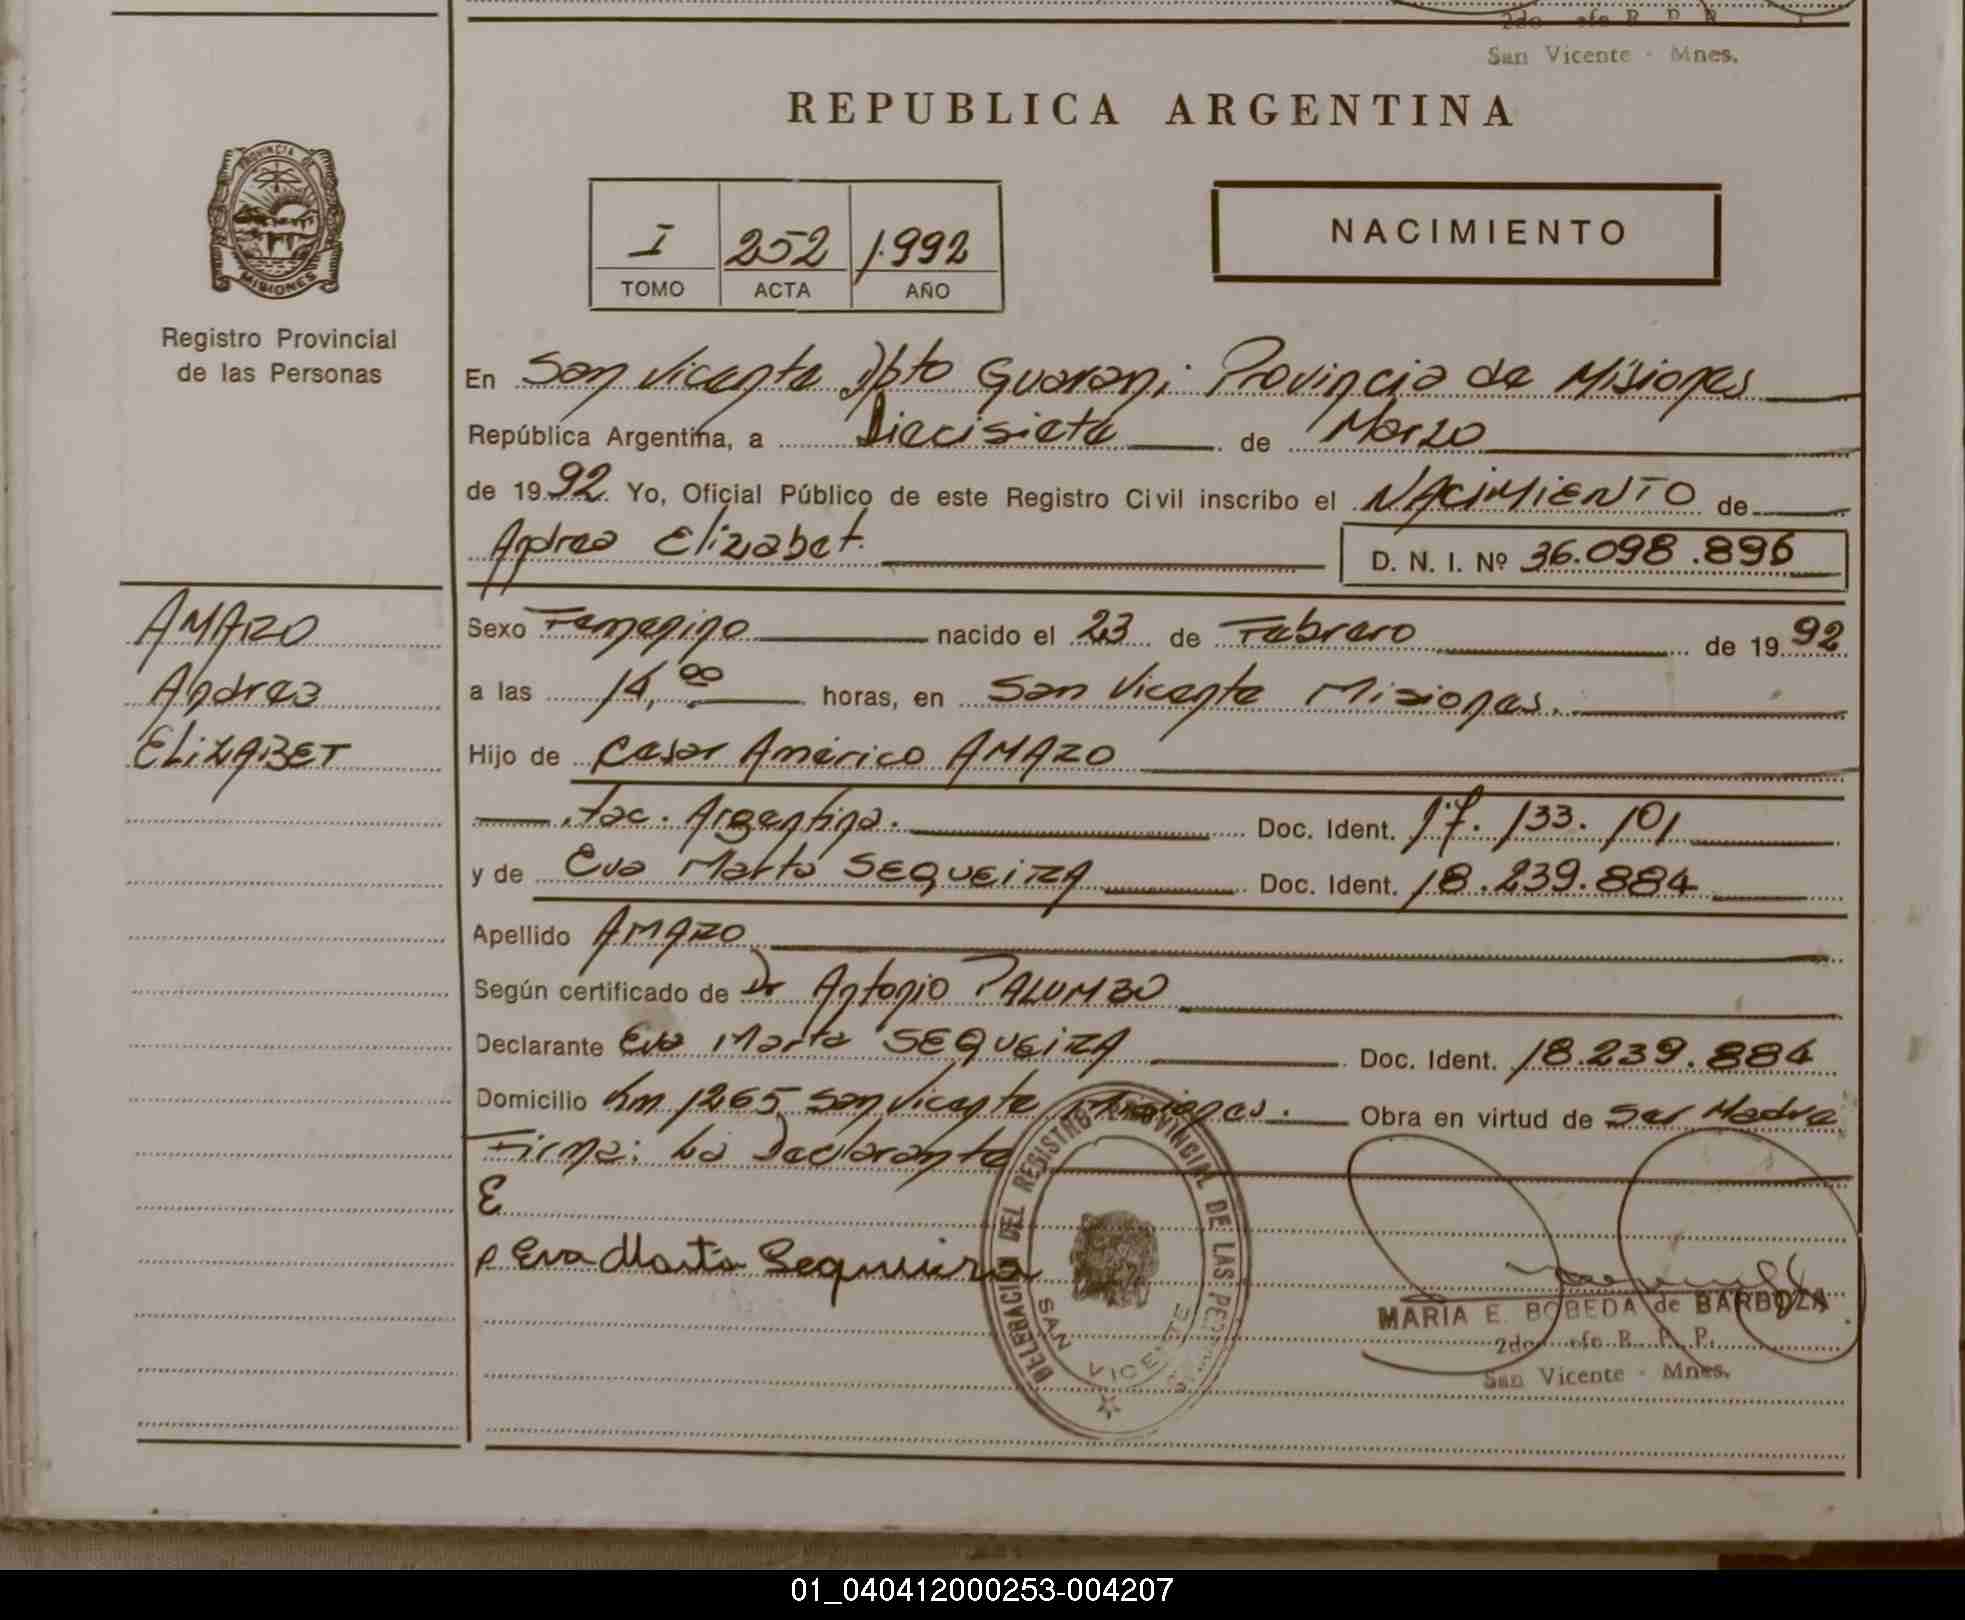 San Vicente - Mnes.
REPUBLICA ARGENTINA
PROVINCIA DE
MISIONES
Registro Provincial
de las Personas
I 252 1.992
TOMO ACTA AÑO
NACIMIENTO
En San Vicente Dpto Guarani Provincia de Misiones
República Argentina, a Diecisiete de Marzo
de 1992. Yo, Oficial Público de este Registro Civil inscribo el NACIMIENTO de
Andrea Elizabet.
D. N. I. Nº 36.098.896
AMARO
Andrea
ELIZABET
Sexo Femenino nacido el 23 de Febrero de 1992
a las 14,00 horas, en San Vicente Misiones.
Hijo de Cesar Américo AMARO
.fac. Argentina. Doc. Ident. 17.133.101
y de Eva Marta SEQUEIRA Doc. Ident. 18.239.884
Apellido AMARO
Según certificado de Dr Antonio PALUMBO
Declarante Eva Marta SEQUEIRA Doc. Ident. 18.239.884
Domicilio Km 1265 San Vicente Misiones. Obra en virtud de Ser Madre
Firma: La Declarante
E
Eva Marta Sequeira
DELEGACION DEL REGISTRO PROVINCIAL DE LAS
SAN VICENTE
MARIA E. BOBEDA de BARBOZA
2do R. P. P.
San Vicente - Mnes.
01_040412000253-004207